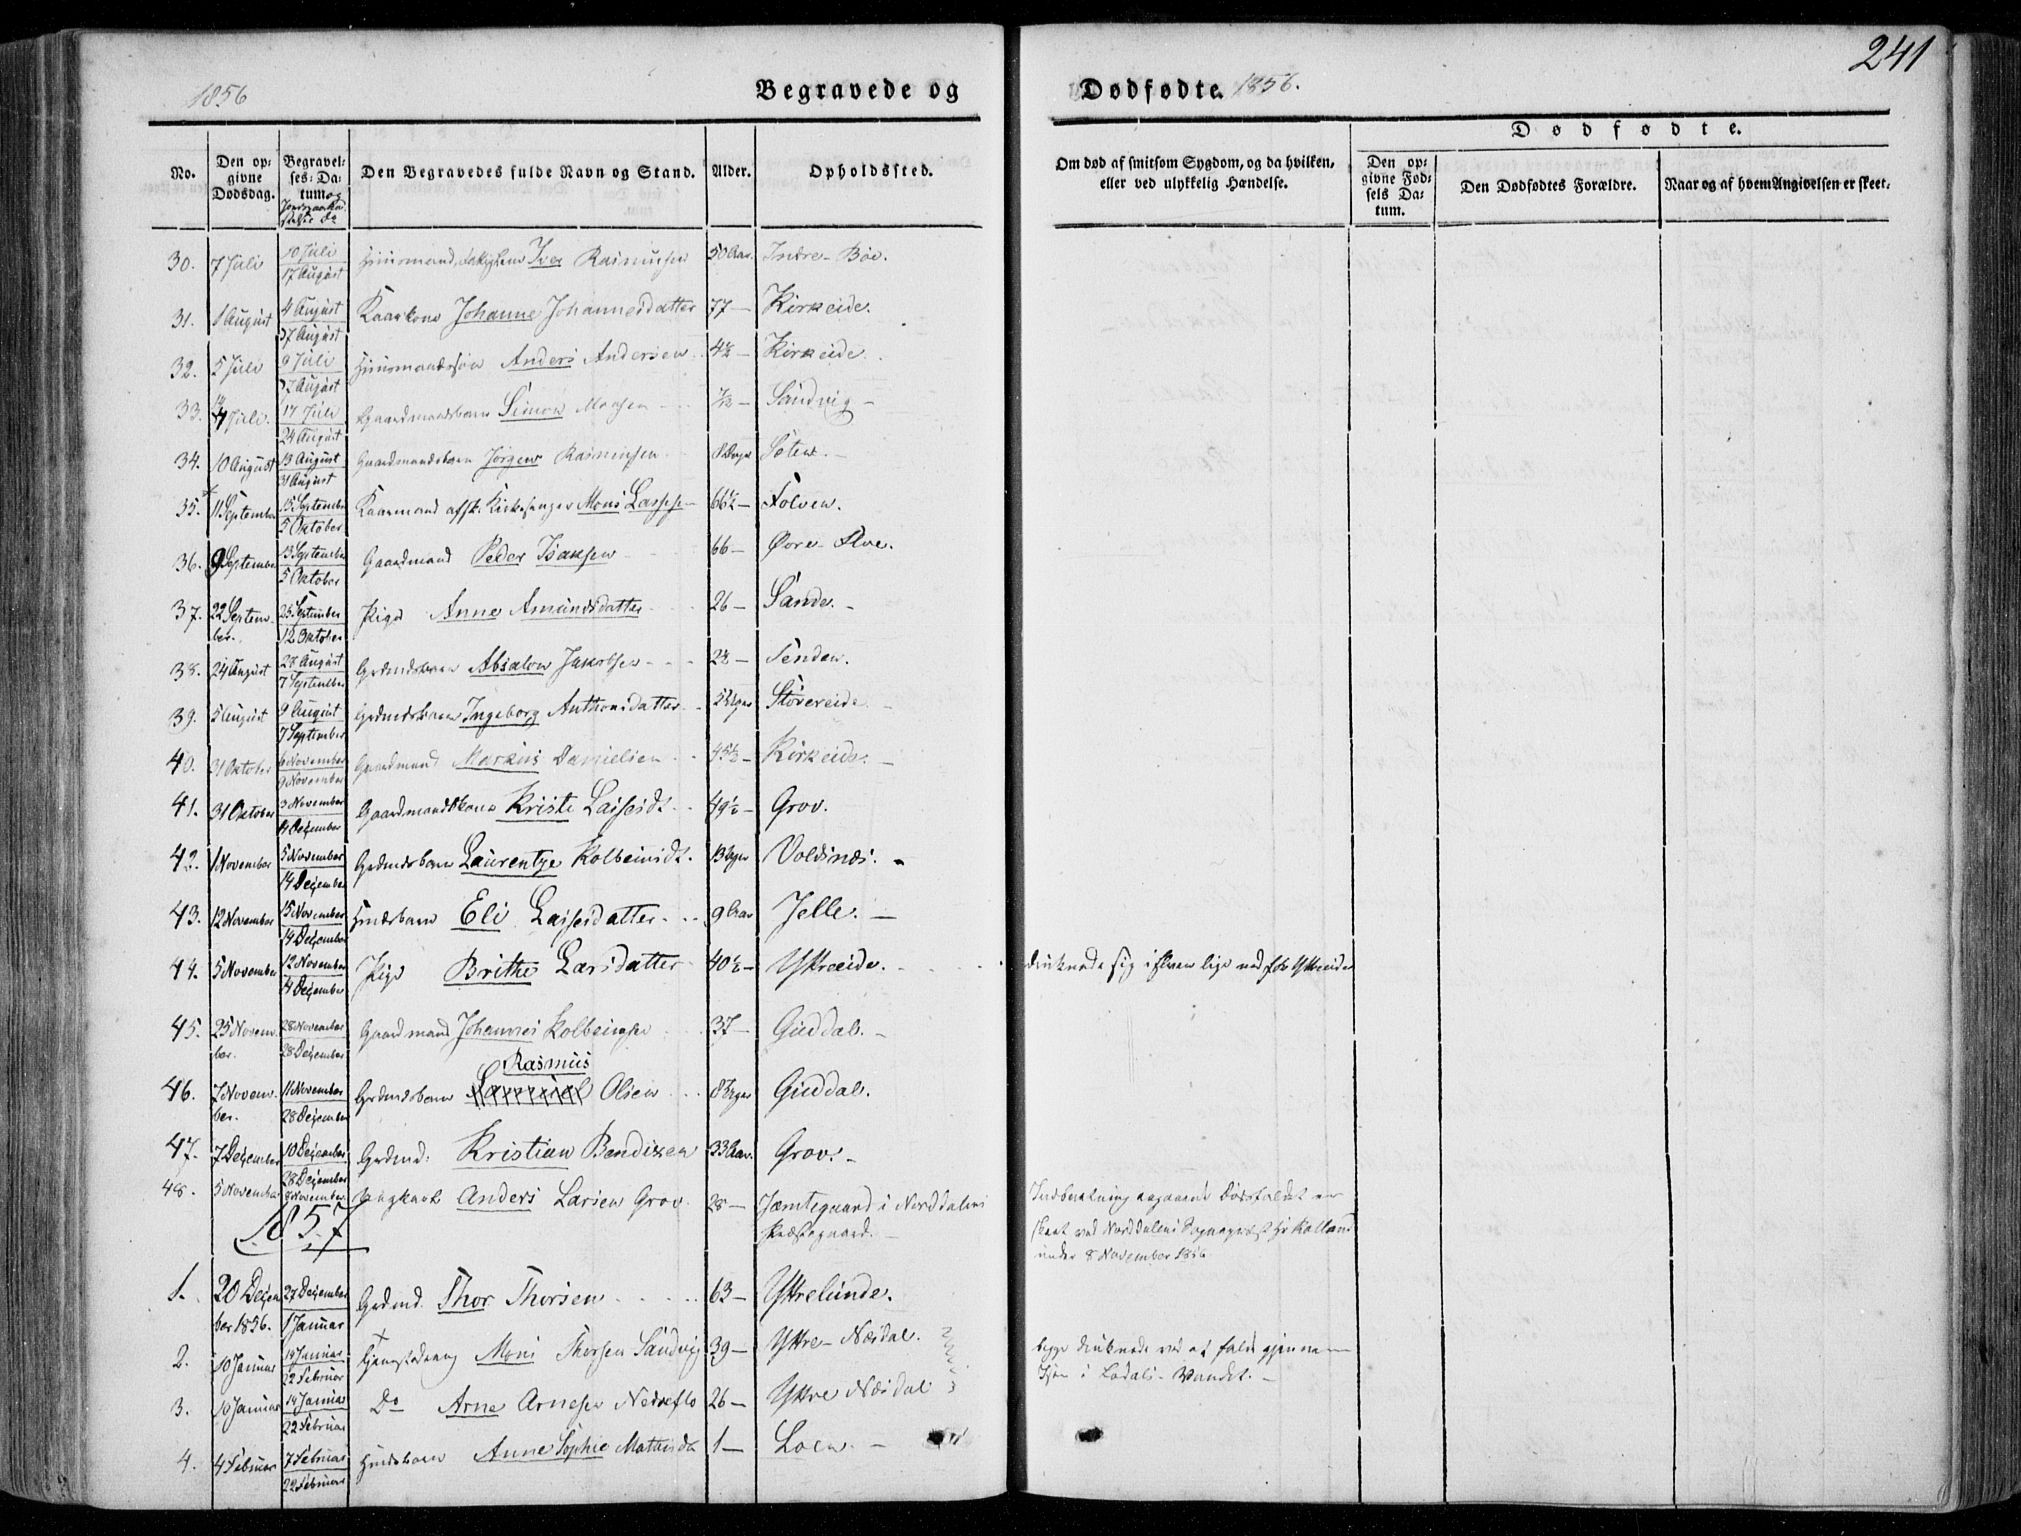 241
1856
Begravede og
Dødfødte. 1856.
Dødfødte.
No.
Den opgivne Dødsdag.
Begravelses-Datum og Jordpaakastelse Do
Den Begravedes fulde Navn og Stand.
Alder.
Opholdssted.
Om død af smitsom Sygdom, og da hvilken, eller ved ulykkelig Hændelse.
Den opgivne Fødsels Datum.
Den Dødfødtes Forældre.
Naar og af hvem Angivelsen er skeet.
30. 7 Juli 10 Juli 17 August Huusmand Iver Rasmussen 50 Aar. Indre-Bøe.
31. 1 August 4 August 17 August Kaarkone Johanne Johannesdatter 77 — Kirkeide.
32. 5 Juli 9 Juli 17 August Huusmandssøn Anders Andersen 4½ — Kirkeide.
33. Juli. 17 Juli 24 August Gaardmandsbarn Simon Monsen 7/12 — Sandvig —
34. 10 August 13 August 31 August Gaardmandsbarn Jørgen Rasmussen 8 Dage Soten. —
35. 11 September 15 September 5 Oktober Kaarmand afsk. Kirkesanger Mons Lassese 66½ — Folven.
36. 9 September 13 September 5 Oktober Gaardmand Peder Isaksen 66 — Øvre-Floe.
37. 22 September. 25 September 12 Oktober Pige Anne Amundsdatter 26 — Sande. —
38. 24 August 28 August 7 September Grdmdsbarn Absalon Jakobsen 2½ — Tenden.
39. 5 August 9 August 7 September Grdmdsbarn Ingeborg Anthonsdatter Storeeide —
40. 31 Oktober 6 November 9 November Gaardmand Markus Danielsen 45½ — Kirkeide. —
41. 31 Oktober 3 November 14 Dezember Gaardmandskone Kristi Lassesdt. 49½ — Grov.
42. 1 November 5 November 14 Dezember Grdmdsbarn Laurentze Kolbeinsdt. 13 Dage Voldsnæs. —
43. 12 November 15 November 14 Dezember Hmdsbarn Eli Lassesdatter 9 Aar Jelle. —
44. 5 November 12 November 14 Dezember Pige Brithe Larsdatter 40½ — Ytreeide. druknede sig i Elven lige ved Ytreeide
45. 25 November. 28 November 28 Dezember Gaardmand Johannes Kolbeinsen 37 — Guddal. —
Rasmus
46. 7 November. 11 November 28 Dezember Grdmdsbarn Samuel Olsen Guddal.
47. 7 Dezember 10 Dezember 28 Dezember Grdmd. Kristian Bendixen 33 Aar. Grov. —
48. 5 November 9 November Anders Larsen Grov 28 — Jæmtegaard i Norddalens Præstegaard. — Indberetning angaaende Dødsfaldet er skeet ved Norddalens Sognepræst Hr Kolland under 8 November 1856
1857
1. 20 Dezember 1856. 27 Dezember 1 Januar Grdmd. Thor Thorsen 63 — Ytrelunde.
2. 10 Januar 14 Januar 22 Februar Tjenestedreng Mons Thorsen Sandvig 39 — Ytre-Næsdal. begge druknede ved at falde gjennem
3. 10 Januar 14 Januar 22 Februar Do Arne Arnesen Nedreflo 26 — Ytre Næsdal Isen i Lodals-Vandet. —
4. 4 Februar 7 Februar 22 Februar Hmdsbarn Anne Sophie Mathisdt 1 — Loen. —